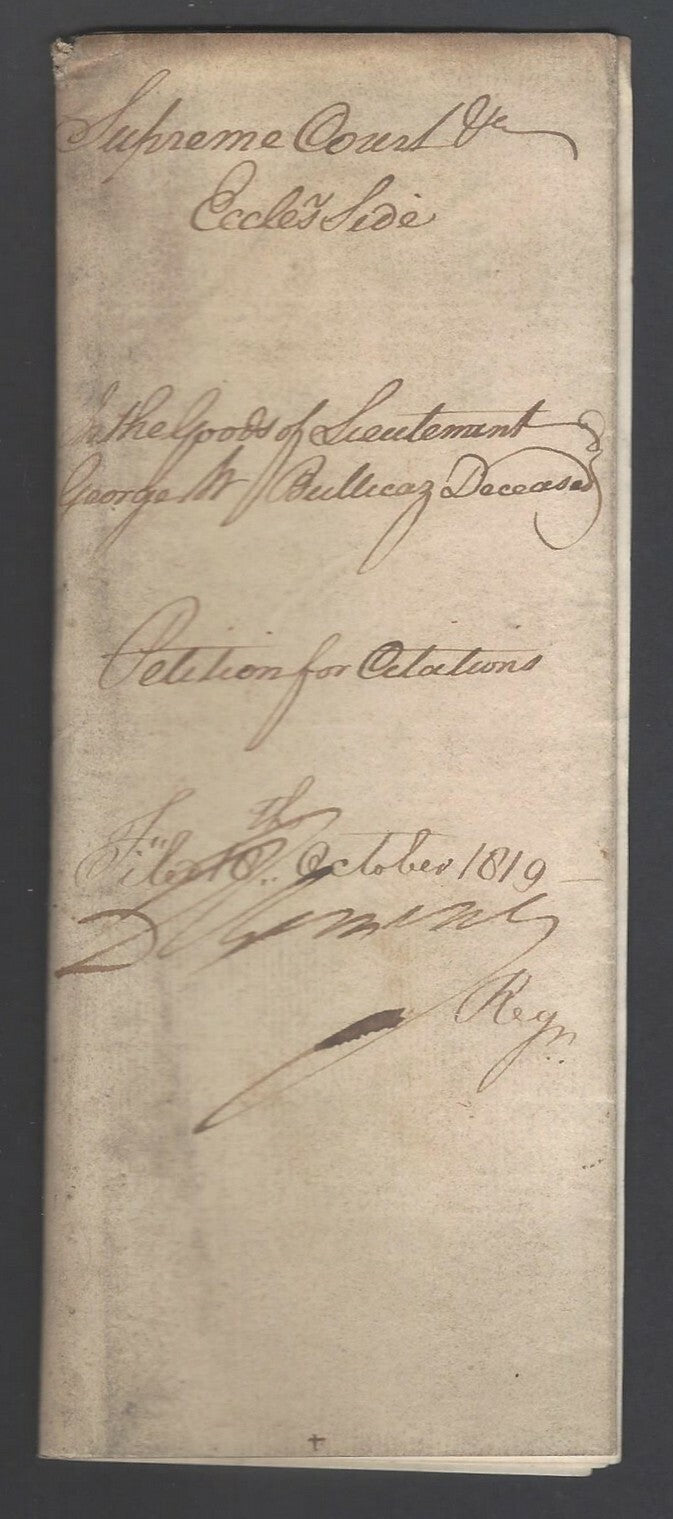 Supreme Court &c
Eccle^s Side
In the Goods of Lieutenant
George W Bullicaz Deceased
Petition for Citations
Filed 18th October 1819
Reg^r